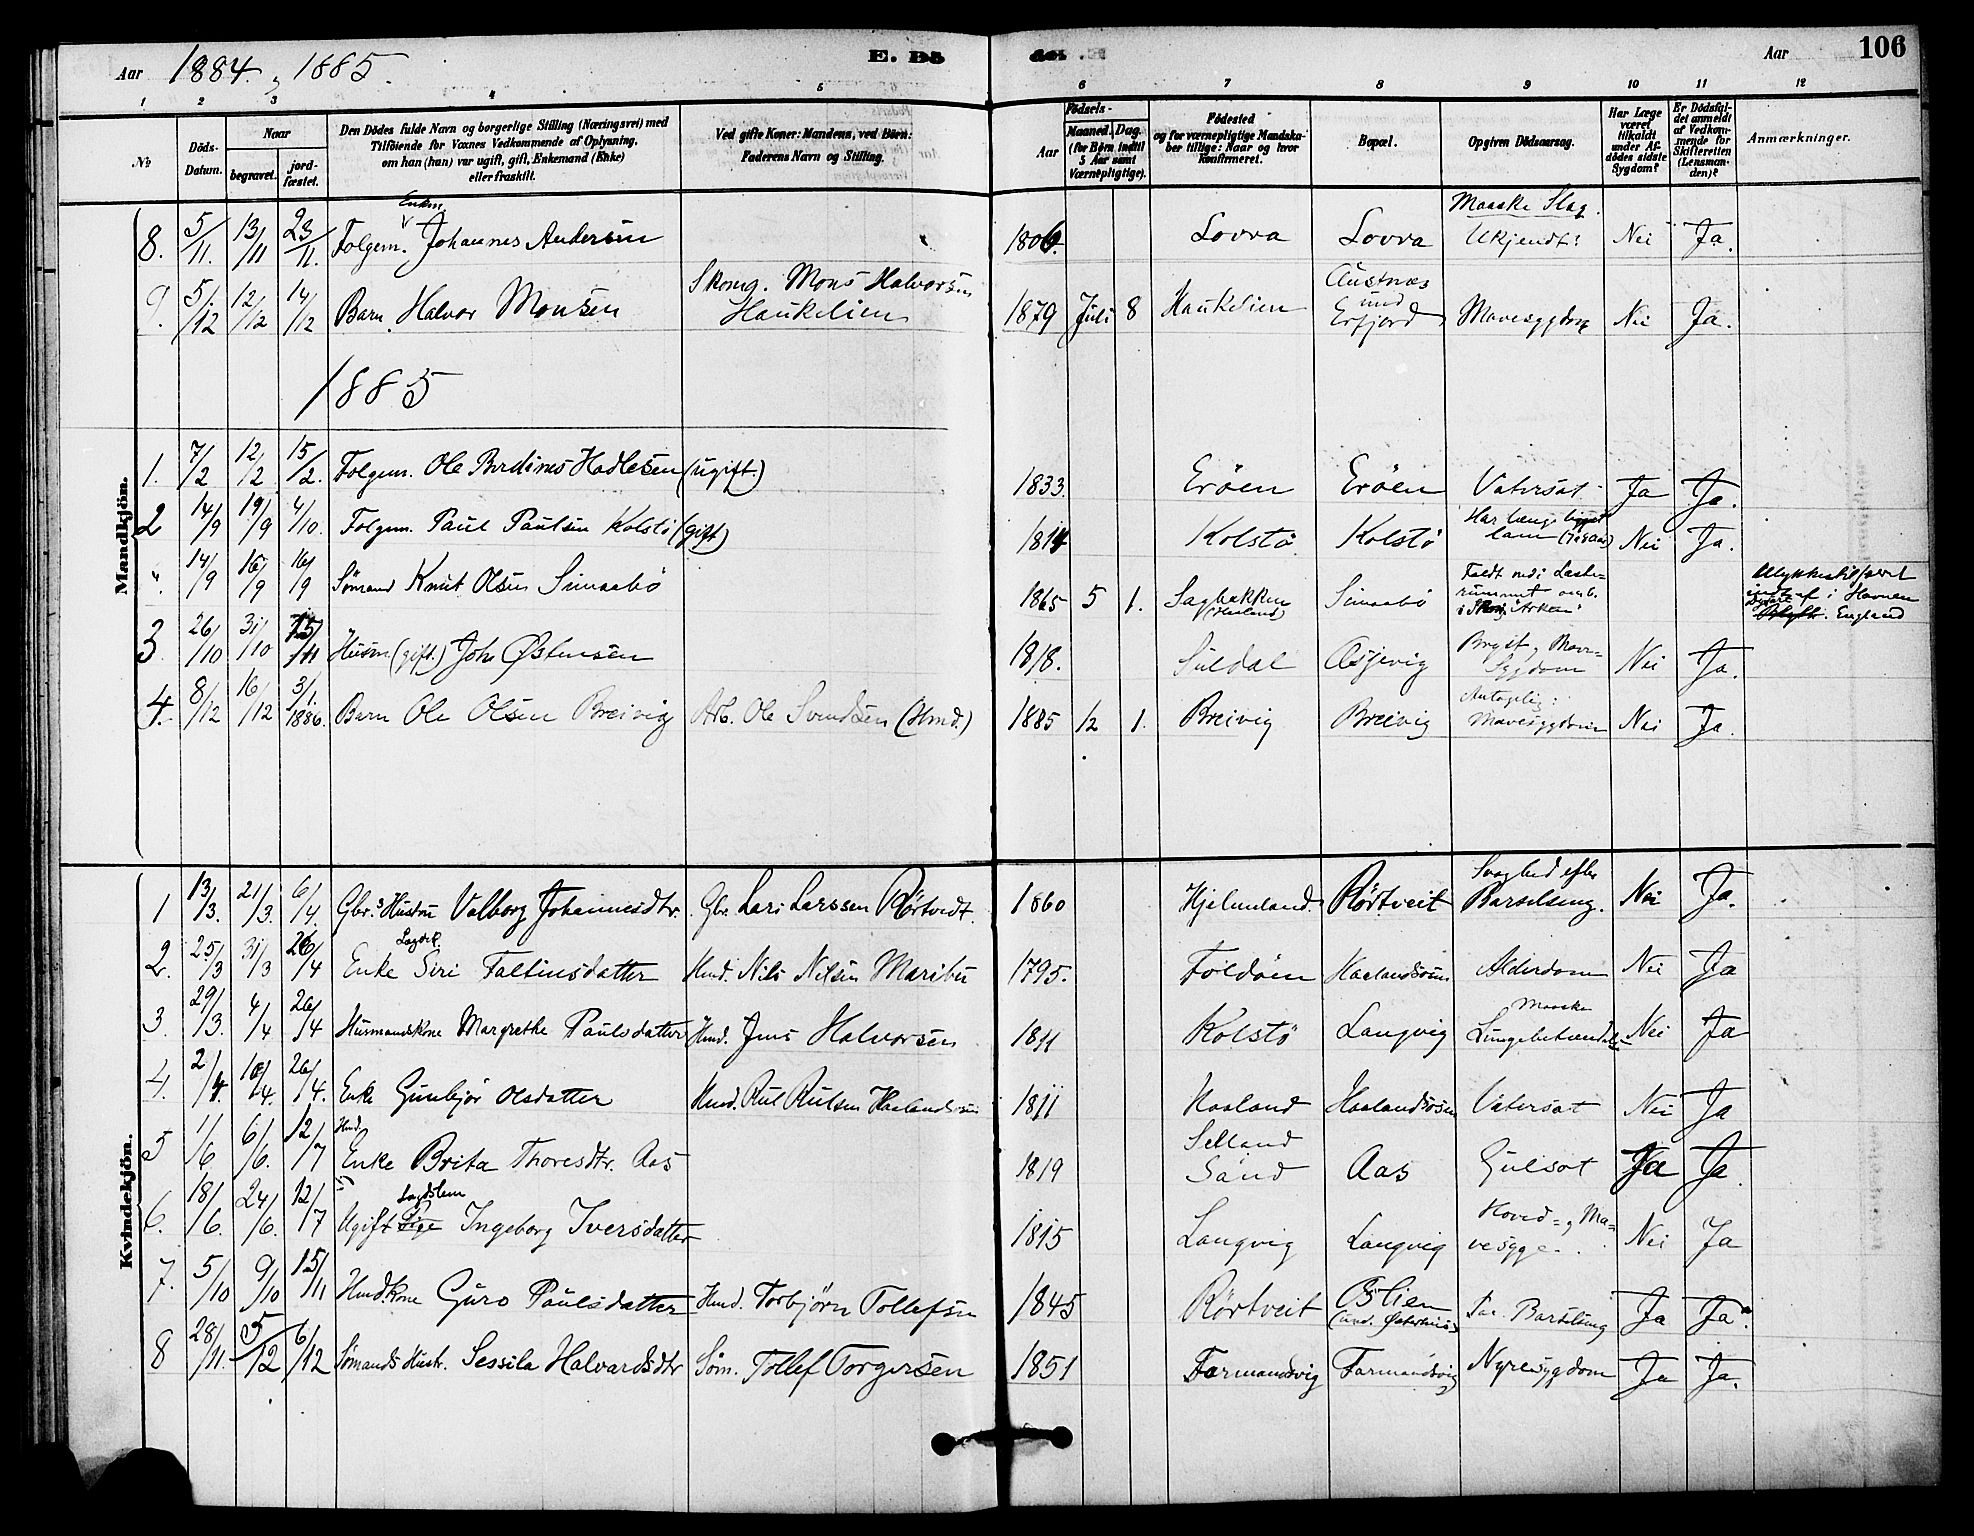 Aar 1884, 1885. E. Dö de. Aar 106
1 2 3 4 5 6 7 8 9 10 11 12
№ Döds-Datum. Naar begravet. jord-fæstet. Den Dödes fulde Navn og borgerlige Stilling (Næringsvei) med Tilföiende for Voxnes Vedkommende af Oplysning, om han (hun) var ugift, gift, Enkemand (Enke) eller fraskilt. Ved gifte Koner: Mandens, ved Börn: Faderens Navn og Stilling. Födsels- Aar Maaned. Dag. (for Børn indtil 5 Aar samt Værnepligtige). Födested og for værnepligtige Mandskaber tillige: Naar og hvor konfirmeret. Bopæl. Opgiven Dödsaarsag. Har Læge været tilkaldt under Afdödes sidste Sygdom? Er Dödsfaldet anmeldt af Vedkommende for Skifteretten (Lensmanden)? Anmærkninger.
Mandkjön.
8. 5/11. 13/11 23/11. Folgem. Enkm. Johannes Andersen 1806. Lovra Lovra Maaske Slag. Ukjendt: Nei Ja.
9. 5/12 12/12 14/12 Barn Halvor Monsen Mons Halvorsen Haukelien 1879 Juli 8 Haukelien Austnæs und Erfjord Mavesygdom Nei Ja.
1885
1. 7/2 12/2 15/2. Folgem. Ole Berdines Hadlesen (ugift.) 1833. Eröen Eröen Vatersot Ja Ja.
2 14/9 19/9 4/10. Folgem. Paul Paulsen Kolstö (gift) 1814 Kolstö Kolstö Har længe ligget lam Nei Ja.
" 14/9 16/9 16/9 Sömand Knut Olsen Simaabö 1865 5 1. Sagbakken (Haaland) Simaabö Faldt ned i Laste-rummet ombord i "Arken" Ulykkestilfældet indtraf i Havnen England
3. 26/10 31/10 15/11 Husm. (gift.) Johs Østensen 1818. Suldal Aasjevig Bryst- og Mave-Sygdom Nei Ja.
4. 8/12 16/12 3/1. 1886. Barn Ole Olsen Breivig Arb. Ole Svendsen (Hmd.) 1885 1/2 1. Breivig Breivig Antagelig: Mavesygdom Nei Ja.
Kvindekjön.
1 13/3. 21/3. 6/4. Gbr.s Hustru Valborg Johannesdtr. Gbr. Lars Larssen Rörtvedt. 1860 Hjelmeland. Rörtveit Svaghed efter Barselseng. Nei Ja.
2. 25/3 31/3 26/4 Enke Lægdsl. Siri Faltinsdatter Hmd. Nils Nilsen Maribu 1795. Foldöen Haalandsosen Alderdom Nei Ja
3. 29/3. 4/4 26/4 Husmandskone Margrethe Paulsdatter Hmd. Jens Halvorsen 1811 Kolstö Langvig Maaske Lungebetændelse Nei Ja
4. 2/4. 10/4. 26/4. Enke Gunbjör Olsdatter Hmd. Rul Rulsen Haalandsosen 1811 Haaland Haalandsosen Vatersot Nei Ja
5 1/6 6/6. 12/7 Hmd. Enke Brita Thoresdtr. Aas 1819 Selland Sand Aas Gulsot Ja Ja.
6. 18/6. 24/6. 12/7 Ugift Lægdslem Pige Ingeborg Iversdatter 1815 Langvig Langvig Hoved- og Mavesyge. Nei Ja
7. 5/10 9/10 15/11 Hmdkone Guro Paulsdatter Hmd. Torbjörn Tollefsen 1845 Rörtveit Oslien (und. Østerhus) Barselseng Ja Ja.
8 28/11. 5/12 6/12 Sømands Hustr. Sessila Halvardsdtr Söm. Tollef Torgersen 1851 Farmandsvig Farmandsvig Nyresygdom Ja Ja.